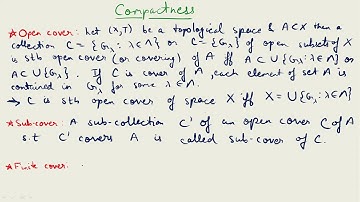 Compactness
* Open cover: Let (X,T) be a topological space & A⊂X then a
collection C = {Gλ : λ∈Λ} or C = {Gλ} of open subsets of X
is stb open cover (or covering) of A iff A⊂∪{Gλ : λ∈Λ} or
A⊂∪{Gλ}. If C is cover of A, each element of set A is
contained in Gλ for some λ∈Λ.
→ C is stb open cover of space X iff X = ∪{Gλ : λ∈Λ}
* Sub-cover: A sub-collection C' of an open cover C of A
s.t C' covers A is called sub-cover of C.
* Finite cover: